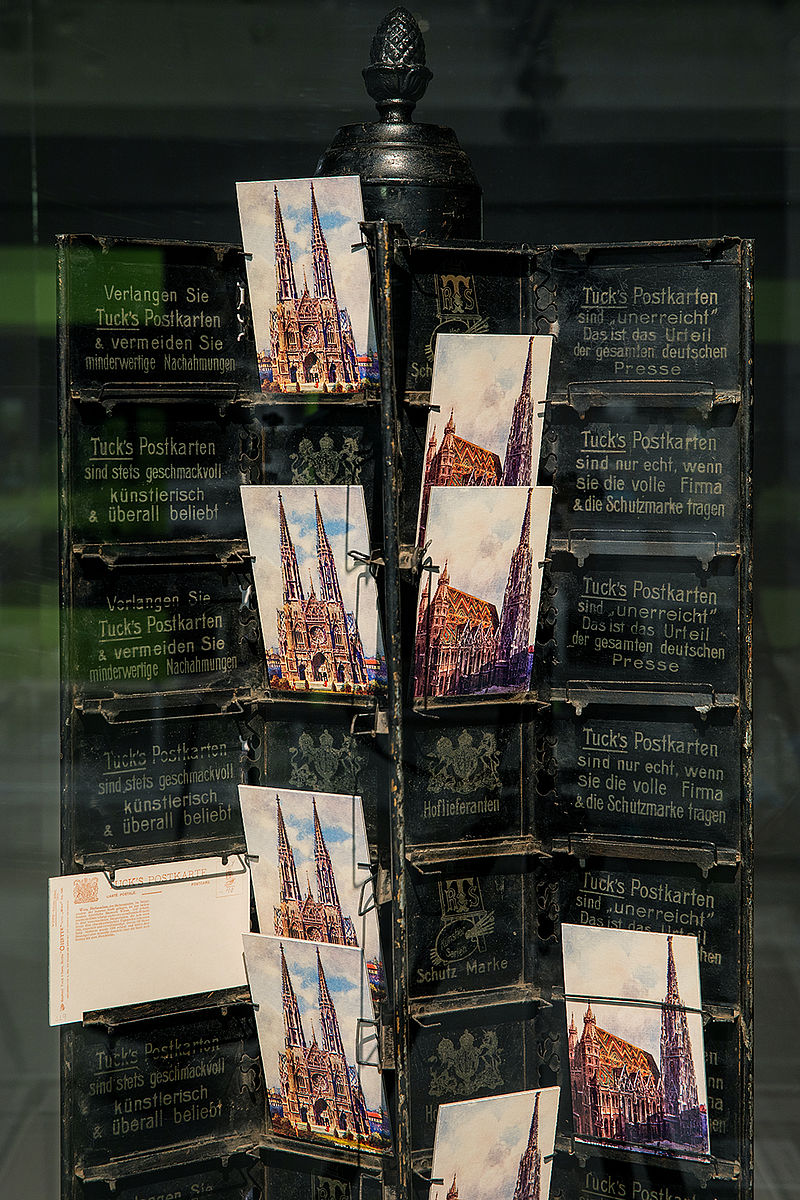 Verlangen Sie
Tuck's Postkarten
& vermeiden Sie
minderwertige Nachahmungen
Tuck's Postkarten
sind stets geschmackvoll
künstlerisch
& überall beliebt
Verlangen Sie
Tuck's Postkarten
& vermeiden Sie
minderwertige Nachahmungen
Tuck's Postkarten
sind stets geschmackvoll
künstlerisch
& überall beliebt
TUCK'S POSTKARTE
CARTE POSTALE
POSTCARD
Tuck's Postkarten
sind stets geschmackvoll
künstlerisch
& überall beliebt
Verlangen Sie
RTS
Sch
Hoflieferanten
RTS
Schutz Marke
Ho
Tuck's Postkarten
sind „unerreicht"
Das ist das Urteil
der gesamten deutschen
Presse
Tuck's Postkarten
sind nur echt, wenn
sie die volle Firma
& die Schutzmarke tragen
Tuck's Postkarten
sind „unerreicht"
Das ist das Urteil
der gesamten deutschen
Presse
Tuck's Postkarten
sind nur echt, wenn
sie die volle Firma
& die Schutzmarke tragen
Tuck's Postkarten
sind „unerreicht"
Das ist das Urteil
hen
en
nn
ma
gen
Tuck's Postkarten